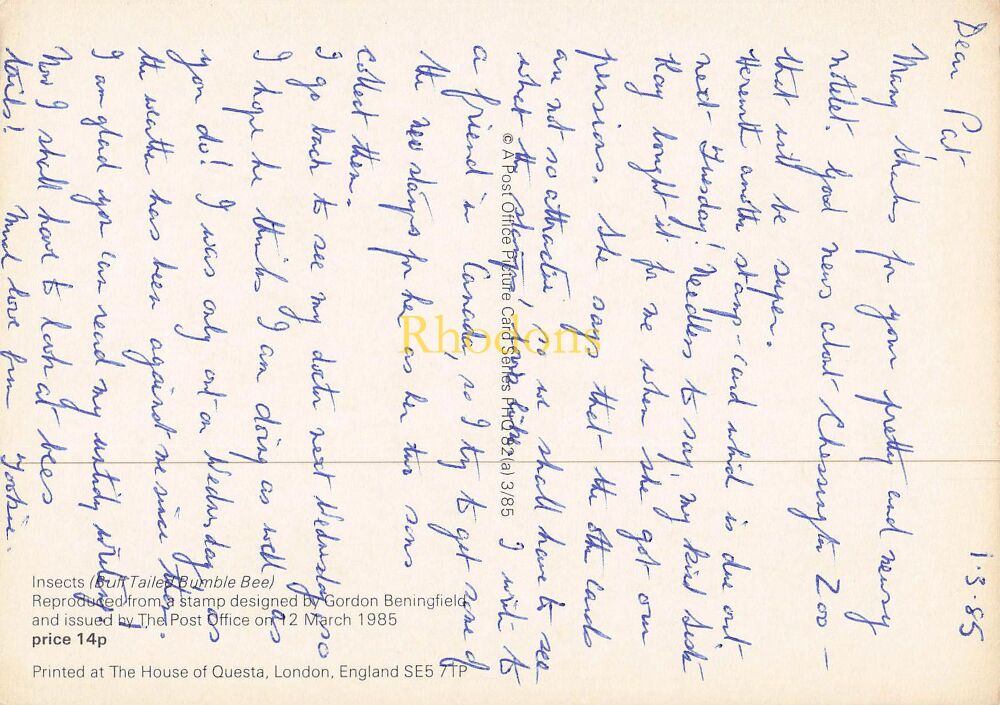 Dear Pat
1·3·85
Many thanks for your pretty and newsy
notelet. Good news about Chessington Zoo –
that will be super.
Herewith another stamp-card which is due out
next Tuesday! Needless to say, my kind Sister
Kay bought it for me when she got our
pensions. She says that the other cards
are not so attractive, so we shall have to see
what the stamps look like. I write to
a friend in Canada, so I try to get some of
the new stamps for her as her two sons
collect them.
I go back to see my doctor next Wednesday, so
I hope he thinks I am doing as well as
you do! I was only out on Wednesday as
the weather has been against me since then.
I am glad you can read my untidy writing!
Now I shall have to look at bees
tails! Much love from
© A Post Office Picture Card Series PHQ 82(a) 3/85
Rhodons
Insects (Buff Tailed Bumble Bee)
Reproduced from a stamp designed by Gordon Beningfield
and issued by The Post Office on 12 March 1985
price 14p
Printed at The House of Questa, London, England SE5 7TP